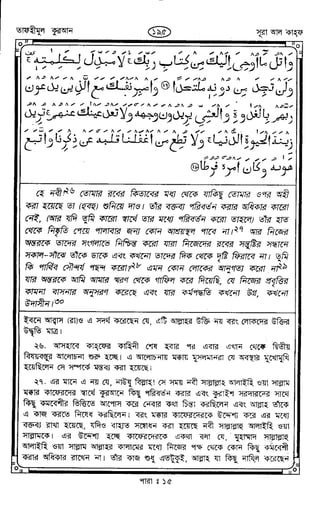 তাফহীমুল কুরআন
১৯৫
সূরা আল কাহফ
وَاتْلُ مَا أُوحِيَ إِلَيْكَ مِنْ كِتَابِ رَبِّكَ لَا مُبَدِّلَ لِكَلِمٰتِهٖ
وَلَنْ تَجِدَ مِنْ دُوْنِهٖ مُلْتَحَدًا ﴿٢٧﴾ وَاصْبِرْ نَفْسَكَ مَعَ الَّذِيْنَ يَدْعُوْنَ
رَبَّهُمْ بِالْغَدٰوةِ وَالْعَشِيِّ يُرِيْدُوْنَ وَجْهَهٗ وَلَا تَعْدُ عَيْنٰكَ عَنْهُمْ تُرِيْدُ
زِيْنَةَ الْحَيٰوةِ الدُّنْيَا وَلَا تُطِعْ مَنْ اَغْفَلْنَا قَلْبَهٗ عَنْ ذِكْرِنَا وَاتَّبَعَ
هَوٰىهُ وَكَانَ اَمْرُهٗ فُرُطًا ﴿٢٨﴾
হে নবী!২৬ তোমার রবের কিতাবের মধ্য থেকে যাকিছু তোমার ওপর অহী
করা হয়েছে তা (হুবহু) শুনিয়ে দাও। তাঁর বক্তব্য পরিবর্তন করার অধিকার কারো
নেই, (আর যদি তুমি কারো স্বার্থে তার মধ্যে পরিবর্তন করো তাহলে) তাঁর হাত
থেকে নিষ্কৃতি পেয়ে পালাবার জন্য কোন আশ্রয়স্থল পাবে না।২৭ আর নিজের
অন্তরকে তাদের সংগলাভে নিশ্চিন্ত করো যারা নিজেদের রবের সন্তুষ্টির সন্ধানে
সকাল-সাঁঝে তাঁকে ডাকে এবং কখনো তাদের দিক থেকে দৃষ্টি ফিরাবে না। তুমি
কি পার্থিব সৌন্দর্য পছন্দ করো?২৮ এমন কোন লোকের আনুগত্য করো না২৯
যার অন্তরকে আমি আমার স্মরণ থেকে গাফিল করে দিয়েছি, যে নিজের প্রবৃত্তির
কামনা বাসনার অনুসরণ করেছে এবং যার কর্মপদ্ধতি কখনো উগ্র, কখনো
উদাসীন।৩০
ইবনে আব্বাস (রাঃ)ও এ অর্থ করেছেন যে, এটি আল্লাহর উক্তি নয় বরং লোকদের উক্তির
উদ্ধৃতি মাত্র।
২৬. আসহাবে কাহফের কাহিনী শেষ হবার পর এবার এখান থেকে দ্বিতীয়
বিষয়বস্তুর আলোচনা শুরু হচ্ছে। এ আলোচনায় মক্কায় মুসলমানরা যে অবস্থার মুখোমুখি
হয়েছিলেন সে সম্পর্কে মন্তব্য করা হয়েছে।
২৭. এর মানে এ নয় যে, নাউযু বিল্লাহ! সে সময় নবী সাল্লাল্লাহু আলাইহি ওয়া সাল্লাম
মক্কার কাফেরদের স্বার্থে কুরআনে কিছু পরিবর্তন করার এবং কুরাইশ সরদারদের সাথে
কিছু কমবেশীর ভিত্তিতে আপোস করে নেবার কথা চিন্তা করছিলেন এবং আল্লাহ তাঁকে
এ কাজ করতে নিষেধ করছিলেন। বরং মক্কার কাফেরদেরকে উদ্দেশ্য করে এর মধ্যে
বক্তব্য রাখা হয়েছে, যদিও বাহ্যত সম্বোধন করা হয়েছে নবী সাল্লাল্লাহু আলাইহি ওয়া
সাল্লামকে। এর উদ্দেশ্য হচ্ছে কাফেরদেরকে একথা বলা যে, মুহাম্মাদ সাল্লাল্লাহু
আলাইহি ওয়া সাল্লাম আল্লাহর কালামের মধ্যে নিজের পক্ষ থেকে কোন কিছু কমবেশী
করার অধিকার রাখেন না। তাঁর কাজ শুধু এতটুকুই, আল্লাহ যা কিছু নাযিল করেছেন
পারা : ১৫